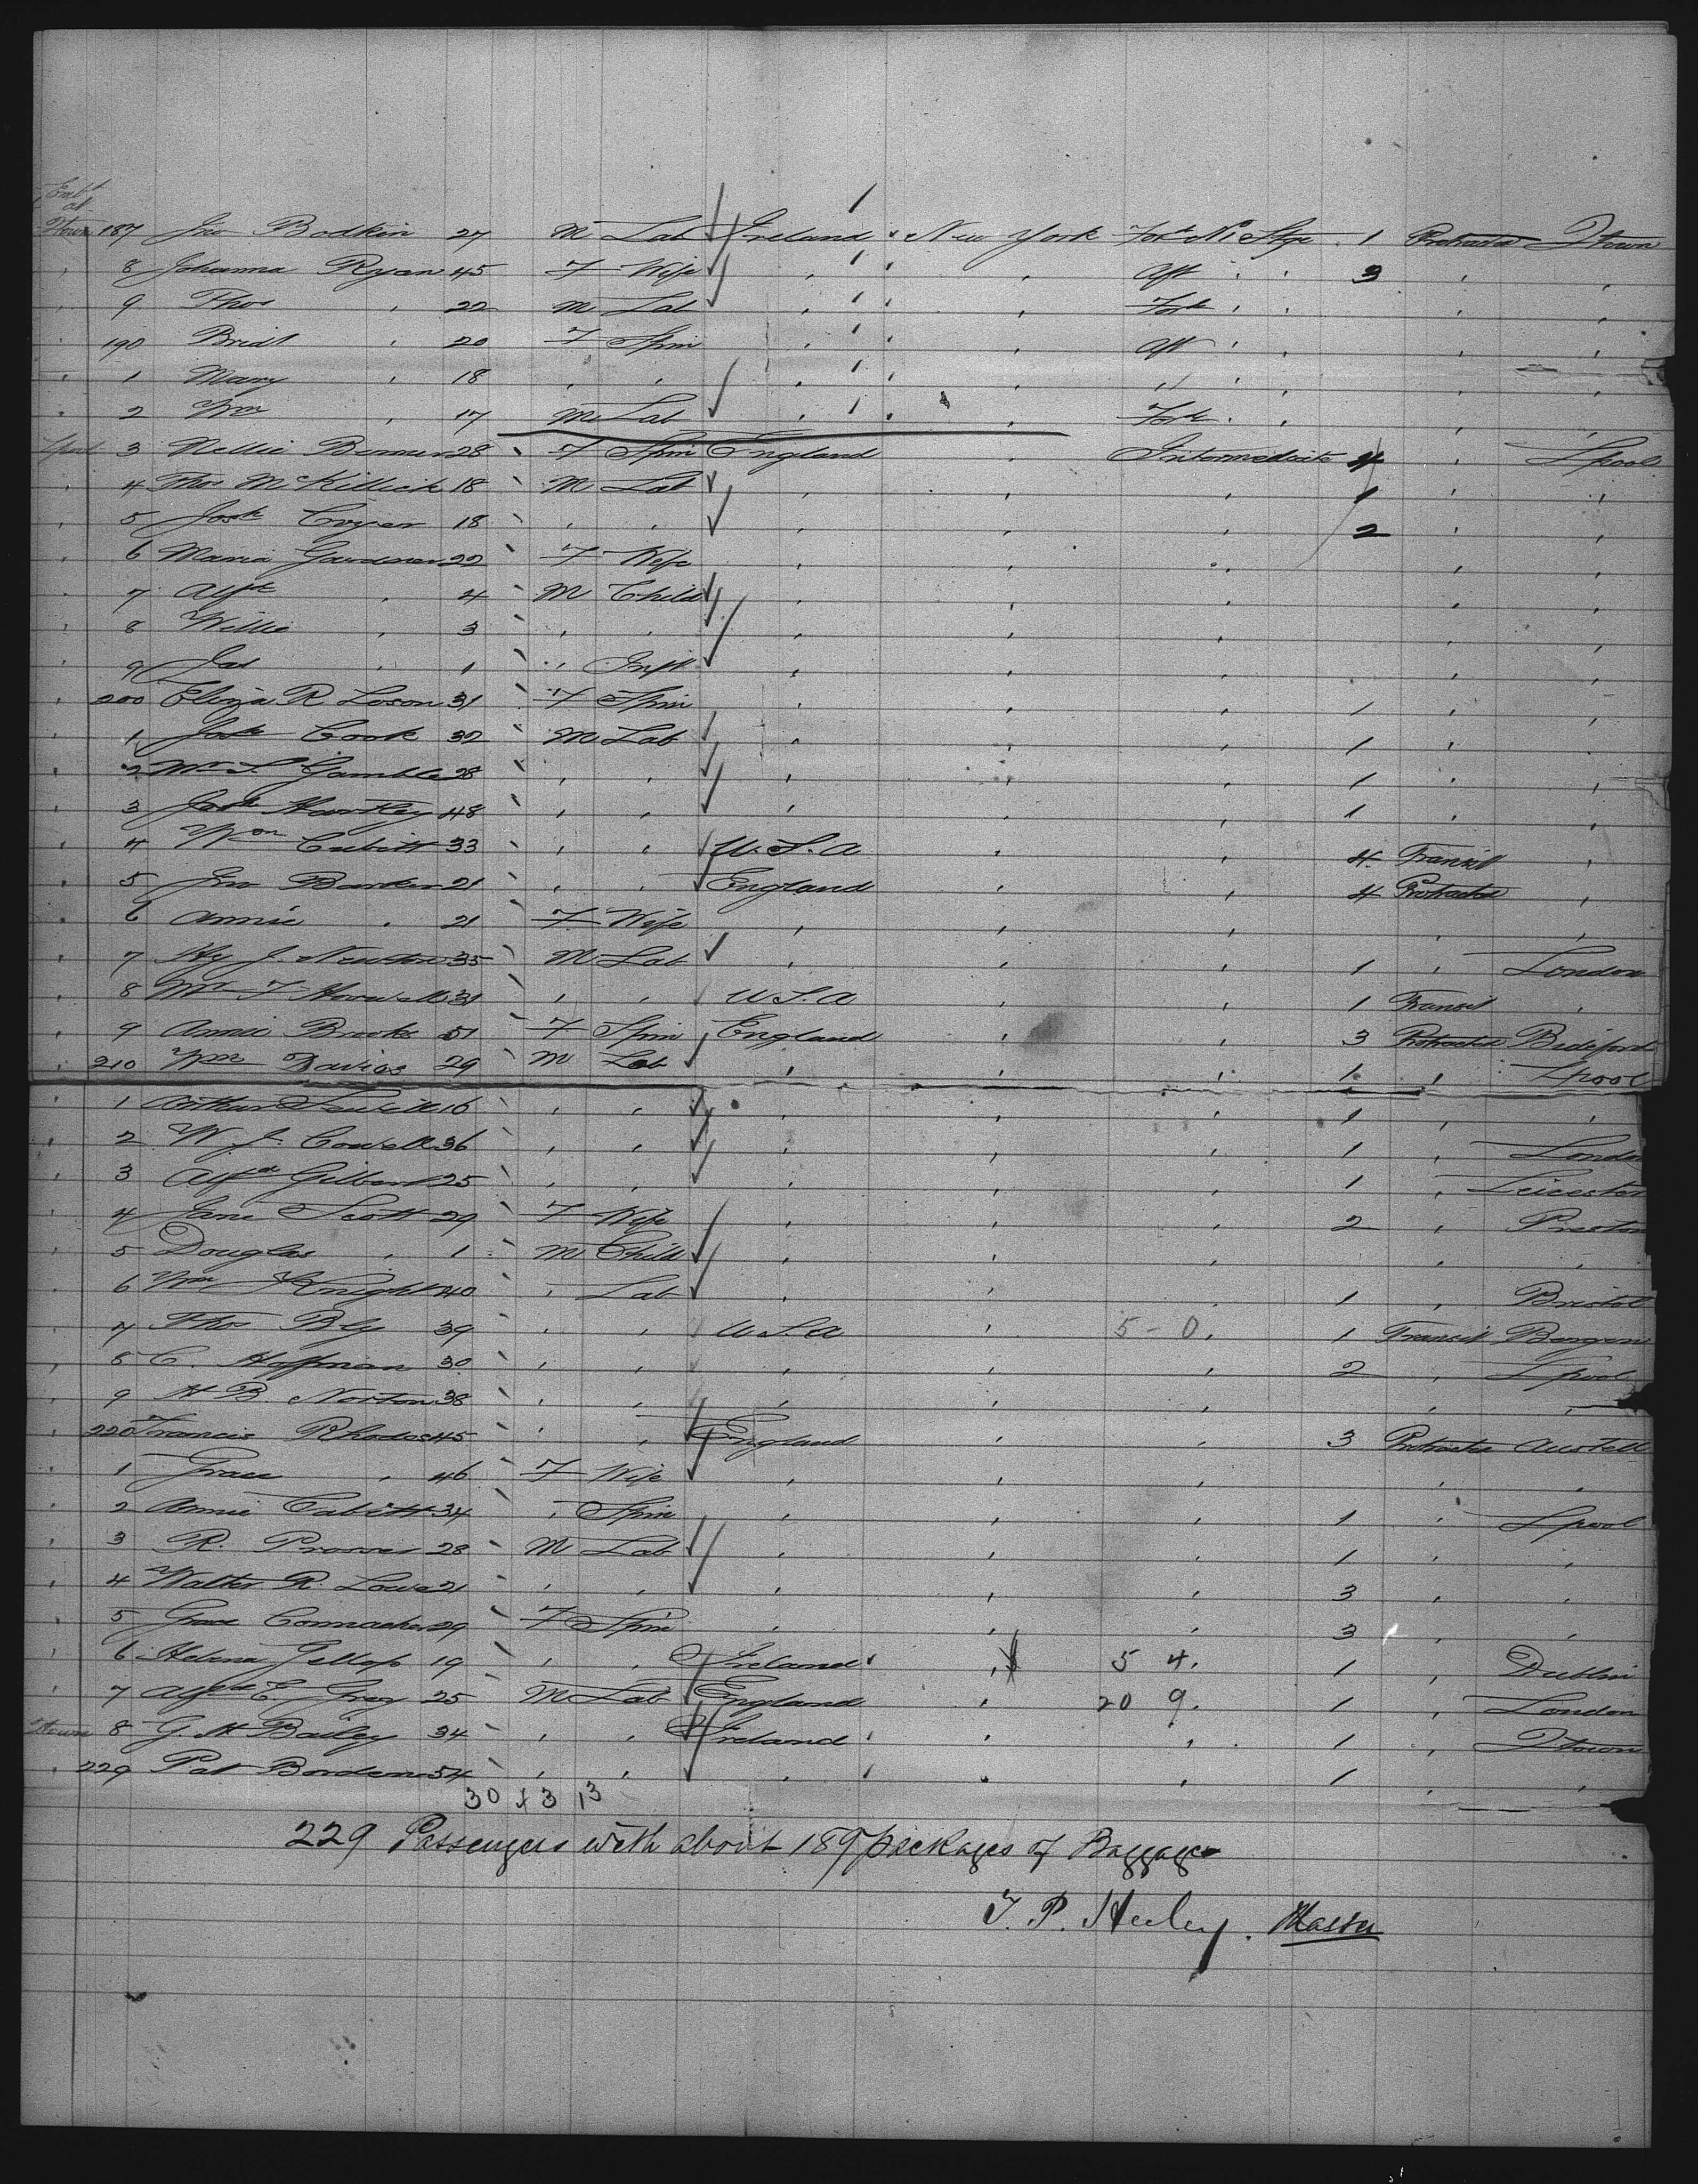 Emb^d
at
Qtown 187 Jno Bodkin 27 M Lab Ireland New York For^d N^o Stge 1 Protracted Qtown
" 8 Johanna Ryan 45 F Wife " " Aft " " 3 " "
" 9 Thos " 22 M Lab " " For^d " " " "
" 190 Bridt " 20 F Spin " " Aft " " " "
" 1 Mary " 18 " " " " " " " "
" 2 Wm " 17 M Lab " " For^d " " " "
Lpool 3 Nellie 28 F Spin England " Intermediate 4 " Lpool
" 4 Thos McKillick 18 M Lab " " " 1 " "
" 5 Josh Cryer 18 " " " " " 2 " "
" 6 Maria Gardner 22 F Wife " " " " "
" 7 Alf^d " 4 M Child " " " " "
" 8 Willie " 3 " " " " " " "
" 9 Jas " 1 " Inft " " " " "
" 200 Eliza R Loson 31 F Spin " " " 1 " "
" 1 Josh Cook 32 M Lab " " " 1 " "
" 2 Mr S. Gamble 28 " " " " " 1 " "
" 3 Josh Hartley 48 " " " " " 1 " "
" 4 Wm Cubitt 33 " " U.S.A " " 4 Transit "
" 5 Jno Barker 21 " " England " " 4 Protracted "
" 6 Annie " 21 F Wife " " " " "
" 7 Hy J. Newton 35 M Lab " " " 1 " London
" 8 Mr F Horwell 31 " " U.S.A " " 1 Transit "
" 9 Annie Brooks 51 F Spin England " " 3 Protracted Bideford
" 210 Wm Davies 29 M Lab " " " 1 " Lpool
" 1 Arthur 16 " " " " " 1 " "
" 2 W J. Cowell 36 " " " " " 1 " London
" 3 Alf^d Gilbert 25 " " " " " 1 " Leicester
" 4 Jane Scott 29 F Wife " " " 2 " Preston
" 5 Douglas " 1 M Child " " " " "
" 6 Wm Knight 40 " Lab " " " 1 " Bristol
" 7 Thos Bly 39 " " U.S.A " 5 - 0. 1 Transit Bergen
" 8 C. Hoffman 30 " " " " " 2 " Lpool
" 9 H B. Norton 38 " " " " " " "
" 220 Francis Rhodes 45 " " England " " 3 Protracted Austell
" 1 Grace " 46 F Wife " " " " "
" 2 Annie Cabitt 34 " Spin " " " 1 " Lpool
" 3 R. Prowse 28 M Lab " " " 1 " "
" 4 Walter R. Lowe 21 " " " " " 3 " "
" 5 Grace 29 F Spin " " " 3 " "
" 6 Helena Gellop 19 " " Ireland " 5 4. 1 " Dublin
" 7 Alf^d E. Gray 25 M Lab England " 20 9. 1 " London
Qtown 8 G. H Bailey 34 " " Ireland " " 1 " Qtown
" 229 Pat Borden 54 " " " " " 1 " "
30 + 3 13
229 Passengers with about 189 packages of Baggage
T. P. Heeley. Master